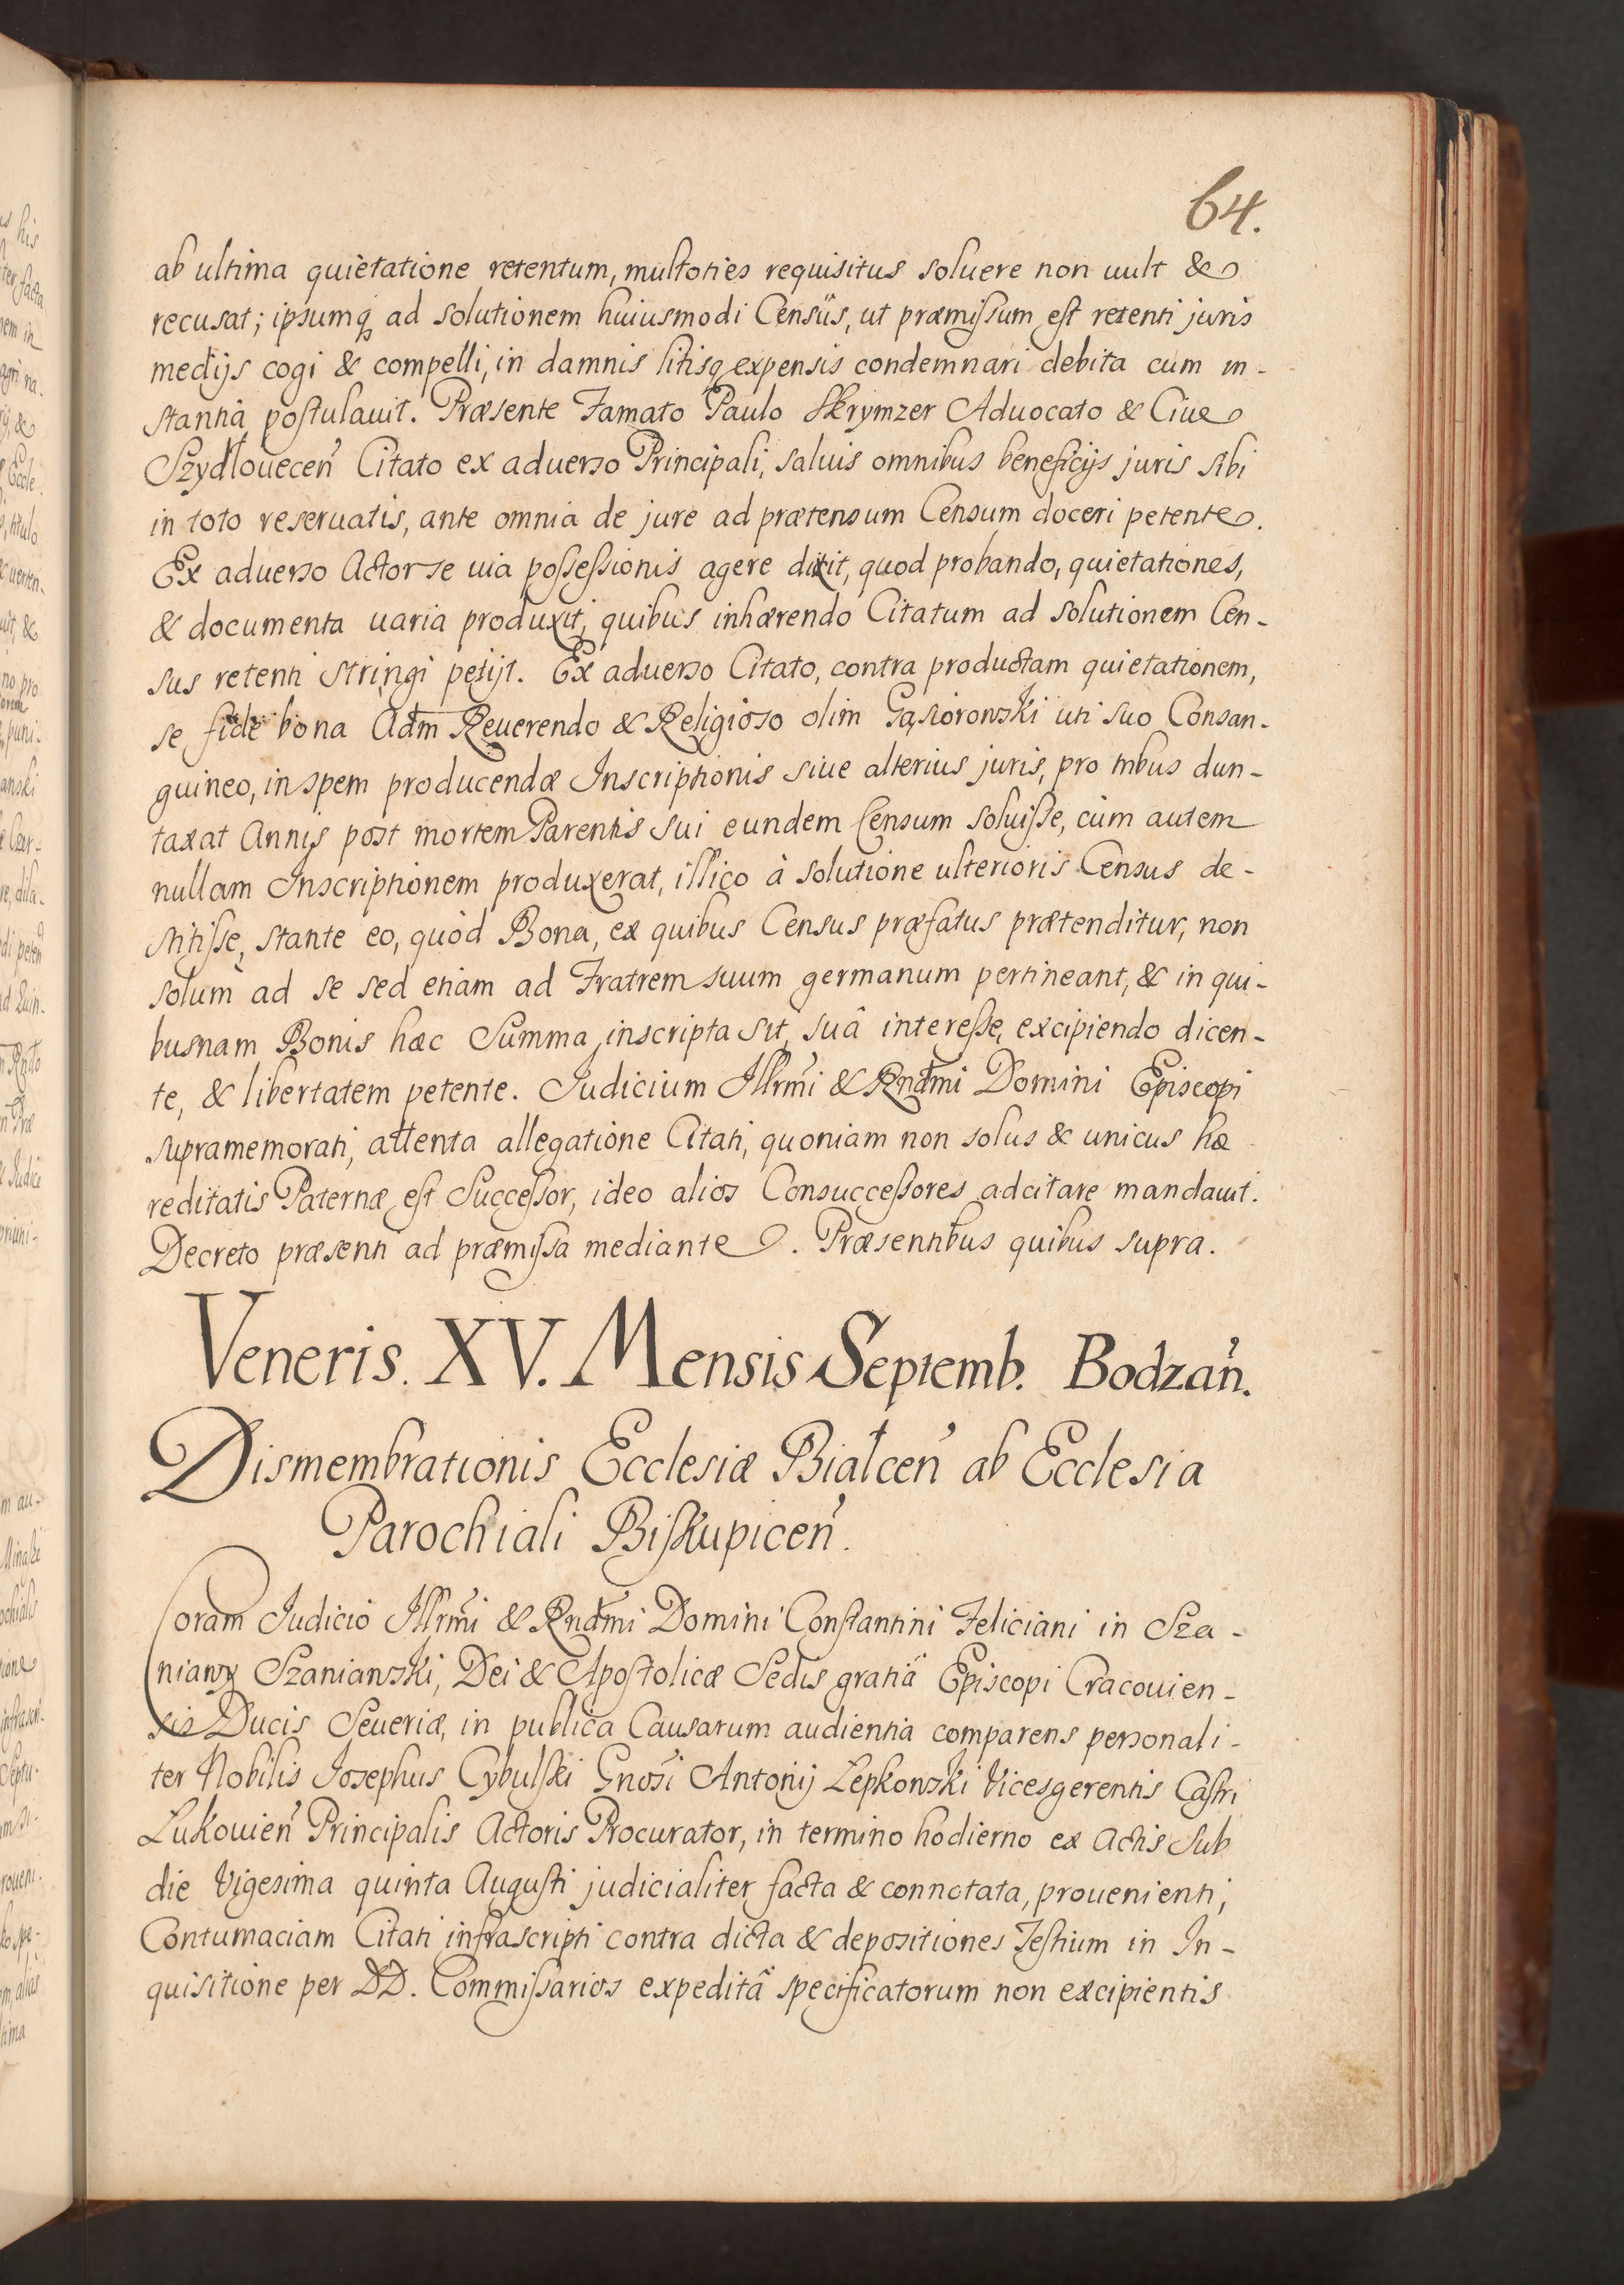 64.
ab ultima quietatione retentum, multoties requisitus soluere non uult &
recusat; ipsumq ad solutionem huiusmodi Censûs, ut præmissum est retenti juris
medijs cogi & compelli, in damnis litisq expensis condemnari debita cum in-
stantia postulauit. Præsente Famato Paulo Skrymzer Aduocato & Ciue
Szydłouecen̄ Citato ex aduerso Principali, saluis omnibus beneficijs juris sibi
in toto reseruatis, ante omnia de jure ad prætensum Censum doceri petente.
Ex aduerso Actor se uia possessionis agere dixit, quod probando, quietationes,
& documenta uaria produxit, quibus inhærendo Citatum ad solutionem Cen-
sus retenti stringi petijt. Ex aduerso Citato, contra productam quietationem,
se fide bona Adm̄ Reuerendo & Religioso olim Gąsiorowski uti suo Consan-
guineo, in spem producendæ Inscriptionis siue alterius juris, pro tribus dun-
taxat Annis post mortem Parentis sui eundem Censum soluisse, cùm autem
nullam Inscriptionem produxerat, illico à solutione ulterioris Census de-
stitisse, stante eo, quòd Bona, ex quibus Census præfatus prætenditur, non
solùm ad se sed etiam ad Fratrem suum germanum pertineant, & in qui-
busnam Bonis hæc Summa inscripta sit, suâ interesse, excipiendo dicen-
te, & libertatem petente. Judicium Illrm̄i & Rndm̄i Domini Episcopi
supramemorati, attenta allegatione Citati, quoniam non solus & unicus hæ
reditatis Paternæ est Successor, ideo alios Consuccessores adcitare mandauit.
Decreto præsenti ad præmissa mediante. Præsentibus quibus supra.
Veneris. XV. Mensis Septemb. Bodzan̄.
Dismembrationis Ecclesiæ Białcen̄ ab Ecclesia
Parochiali Biskupicen̄.
Coram Judicio Illrm̄i & Rndm̄i Domini Constantini Feliciani in Sza-
niawy Szaniawski, Dei & Apostolicæ Sedis gratiâ Episcopi Cracouien-
sis Ducis Seueriæ, in publica Causarum audientia comparens personali-
ter Nobilis Josephus Cybulski Gnosi Antonij Lepkowski Vicesgerentis Castri
Lukouien̄ Principalis Actoris Procurator, in termino hodierno ex Actis sub
die Vigesima quinta Augusti judicialiter facta & connotata, prouenienti,
Contumaciam Citati infrascripti contra dicta & depositiones Testium in In-
quisitione per DD. Commissarios expeditâ specificatorum non excipientis